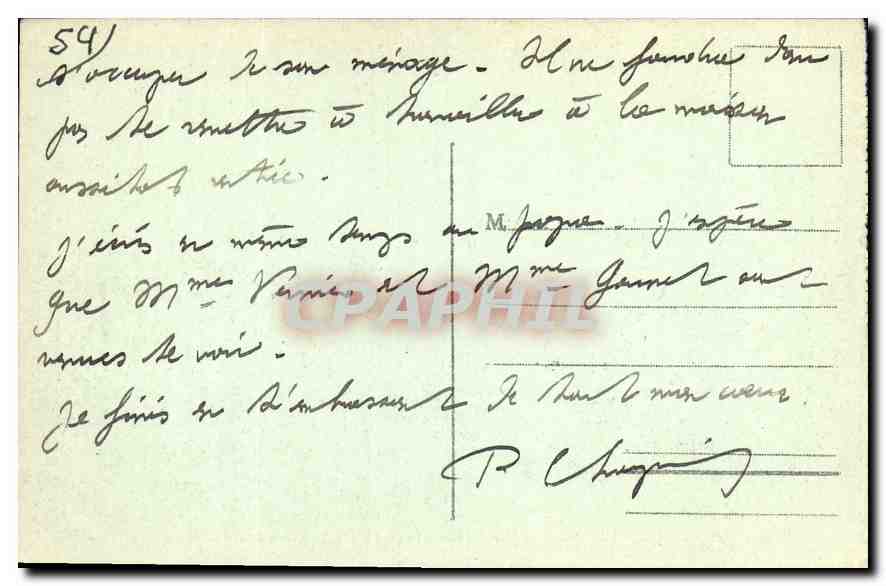 54)
s'occuper de son ménage. Il ne faudra donc
pas te remettre à travailler à la maison
aussitôt rentrée.
M
j'écris en même temps au . J'espère
que Mme Vernier et Mme Gounet sont
venues te voir.
Je finis en t'embrassant de tout mon cœur.
P.
CPAPHIL